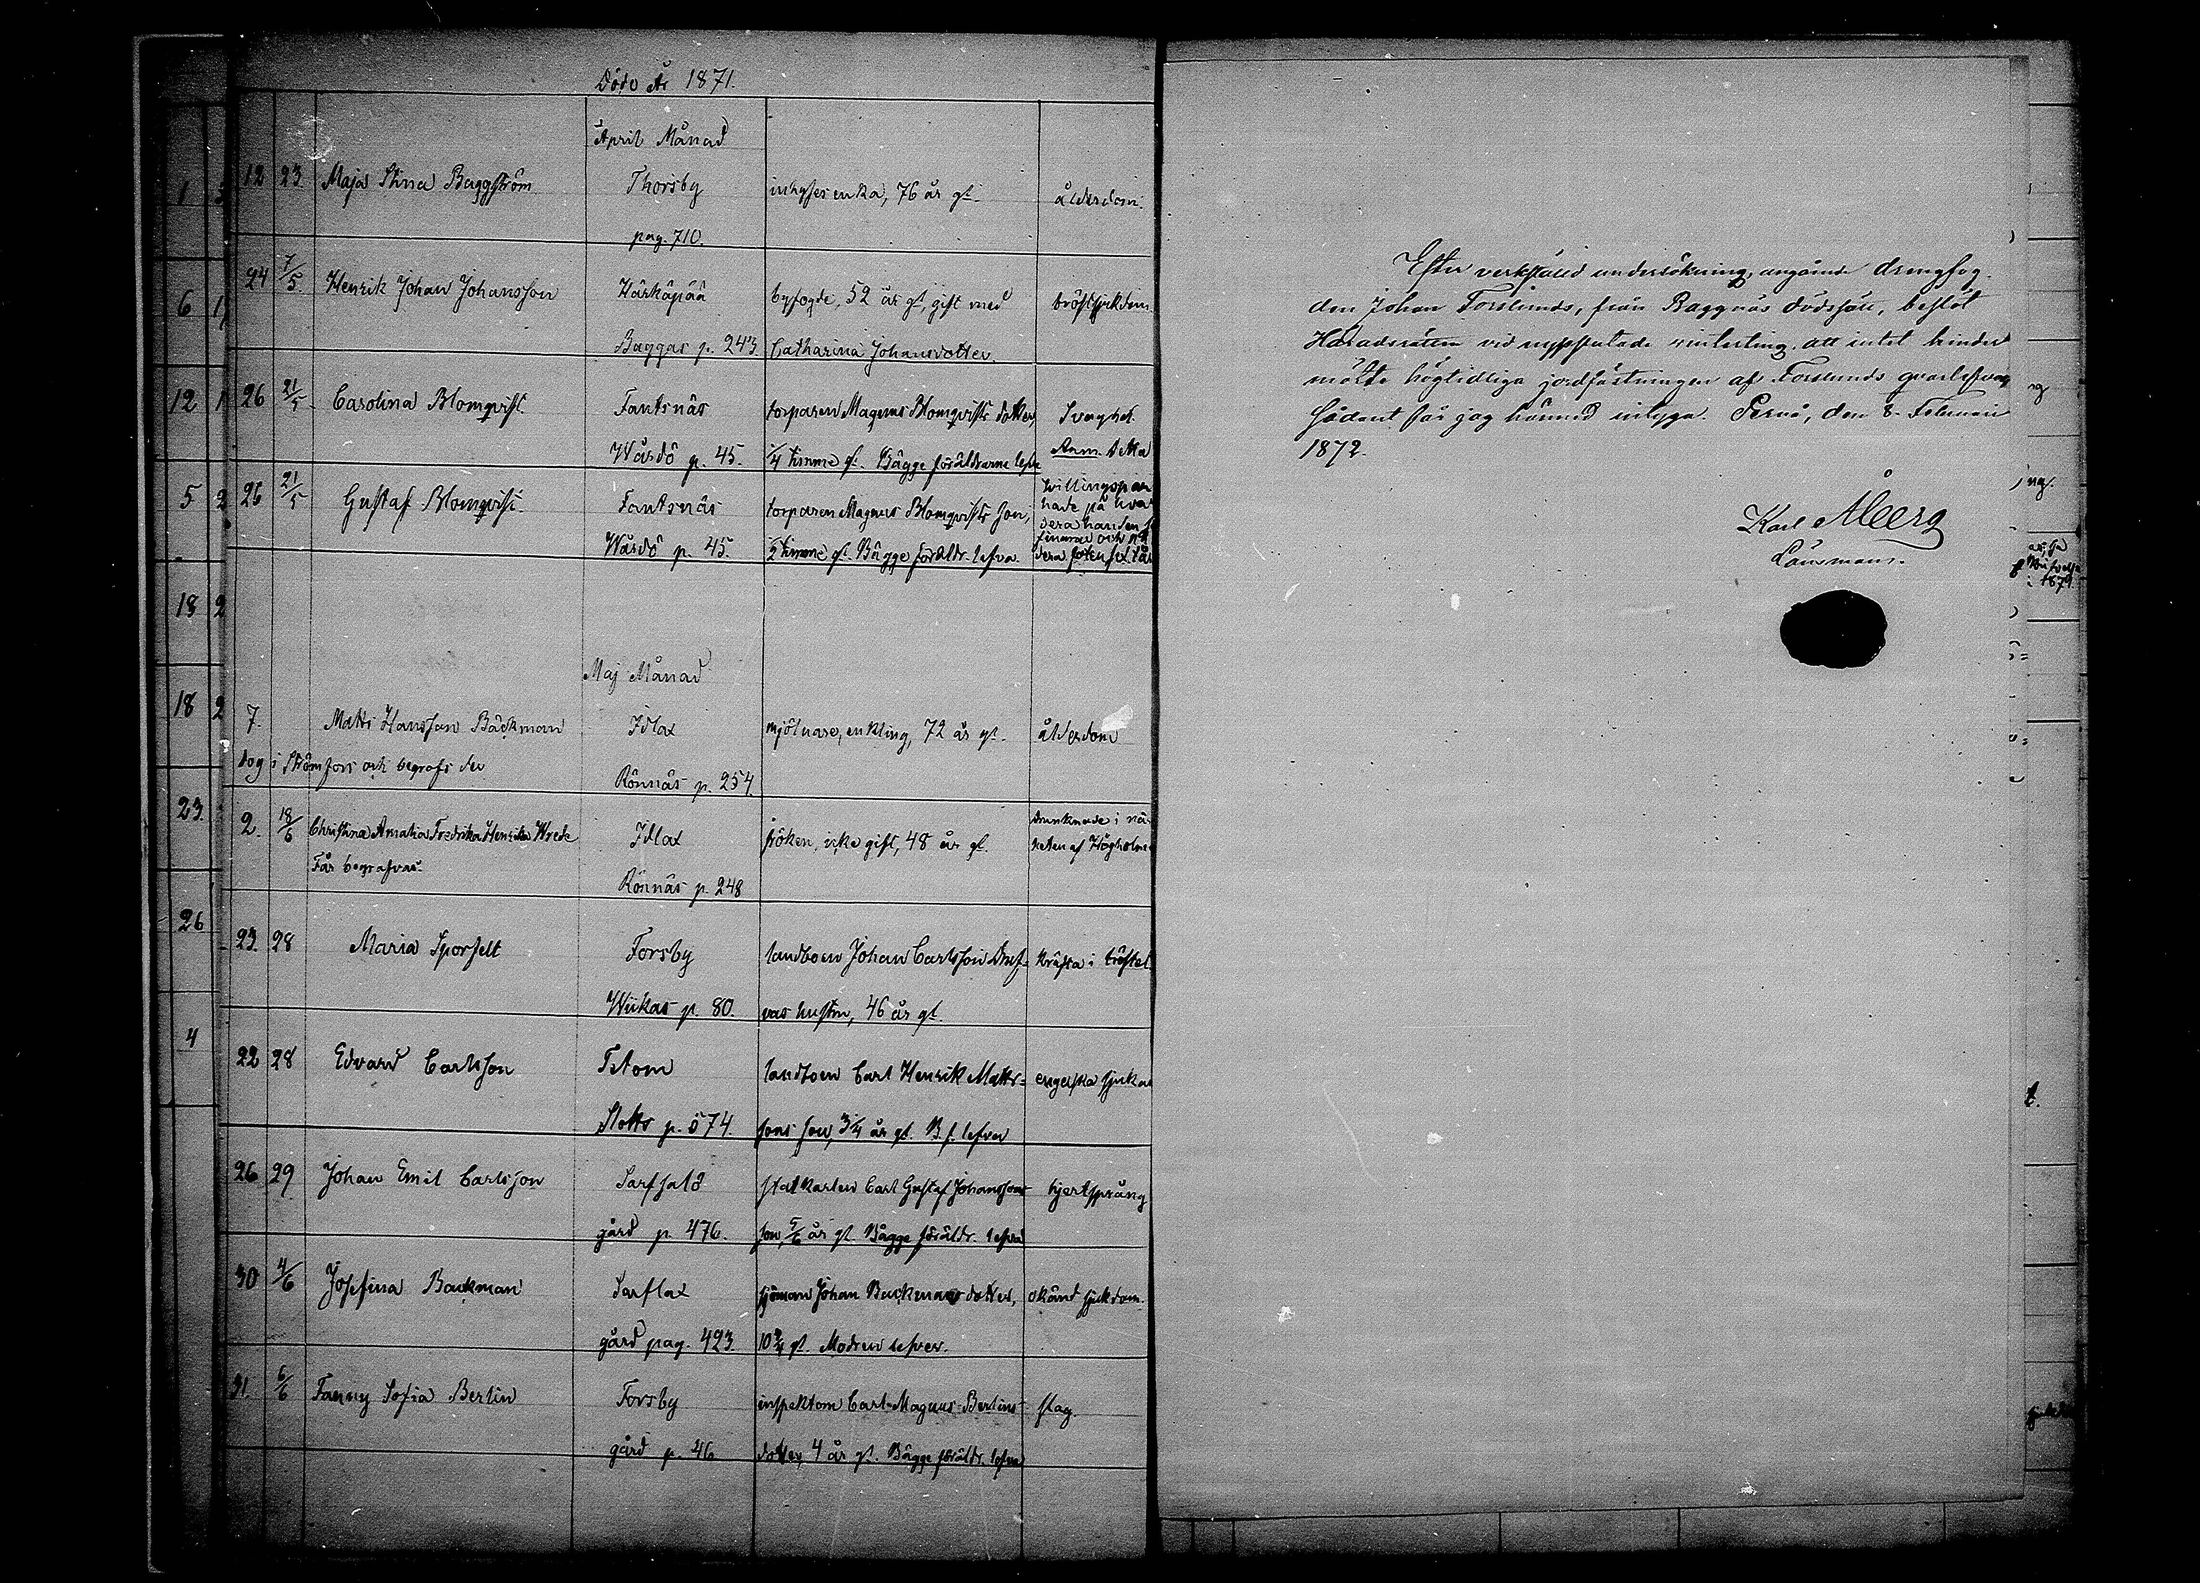 Döde År 1871.
April Månad
12 23 Maja Stina Baggström Thorsby inhyses enka, 76 år gl. ålderdom.
pag. 710.
24 7/5 Henrik Johan Johansson Härkäpää byfogde, 52 år gl, gift med bröstsjukdom.
Baggas p. 243. Catharina Johansdotter.
26 21/5 Carolina Blomqvist Fantsnäs torparen Magnus Blomqvists dotter, Svaghet.
Wårdö p. 45. 1/4 timme gl. Bägge föräldrarne lefva Anm. Detta
tvillingspar
26 21/5 Gustaf Blomqvist Fantsnäs torparen Magnus Blomqvists son, hade på hvar
dera handen
Wårdö p. 45. 1/2 timme gl. Bägge föräldr. lefva. fingrar och på
dera foten sex tår
Maj Månad
7. Matts Hansson Bäckman Idlax mjölnare, enkling, 72 år gl. ålderdom
dog i Strömfors och begrofs der
Rönnäs p. 254.
2. 18/6 Christina Amalia Fredrika Henrika Wrede Idlax fröken, icke gift, 48 år gl. drunknade i nä-
heten af Högholmen
Får begrafvas.
Rönnäs p. 248
23. 28 Maria Sporfelt Forsby landboen Johan Carlsson kräfta i bröstet.
Wiikas p. 80. vas hustru, 46 år gl.
22 28 Edvard Carlsson Tetom landboen Carl Henrik Matts= engelska sjukan
Slotts p. 574. sons son, 3/4 år gl. B. f. lefva
26 29 Johan Emil Carlsson Sarfsalö statkarlen Carl Gustaf Johanssons hjertsprång
gård p. 476. son, 5/6 år gl. Bägge föräldr. lefva
30 4/6 Josefina Backman Sarflax sjöman Johan Backmans dotter, okänd sjukdom.
gård pag. 423. 10 gl. Modren lefver.
31. 6/6 Fanny Sofia Berlin Forsby inspektorn Carl Magnus Berlins slag.
gård p. 46 dotter, 4 år gl. Bägge föräldr. lefva
1
6
12
5
18
18
23.
26
4
Efter verkstäld undersökning, angående drengfog-
den Johan Forslunds, från Baggnäs dödssätt, beslöt
Häradsrätten vid nyssslutade vinterting, att intet hinder
mötte högtidliga jordfästningen af Forslunds qvarlefvor
Sådant får jag härmed intyga. Pernå, den 8. Februari
1872.
Karl Åberg
Länsman.